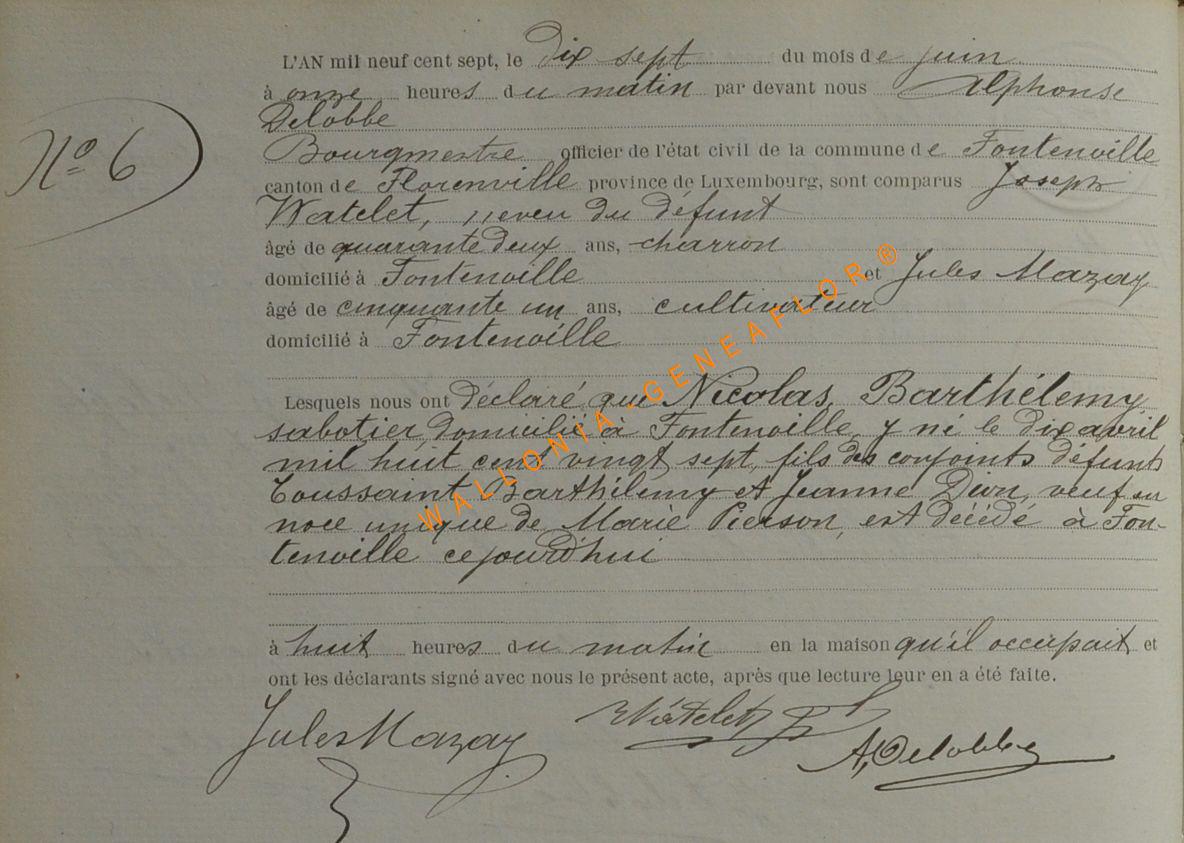 L'AN mil neuf cent sept, le dix sept du mois de juin
à onze heures du matin par devant nous Alphonse
Delobbe
N° 6
Bourgmestre officier de l'état civil de la commune de Fontenoille
canton de Florenville province de Luxembourg, sont comparus Joseph
Watelet, neveu du défunt
âgé de quarante deux ans, charron
domicilié à Fontenoille et Jules Mazay
âgé de cinquante un ans, cultivateur
domicilié à Fontenoille
Lesquels nous ont déclaré que Nicolas Barthélemy
sabotier, domicilié à Fontenoille, y né le dix avril
mil huit cent vingt sept, fils des conjoints défunts
Toussaint Barthélemy et Jeanne veuf en
noce unique de Marie Pierson, est décédé à Fon-
tenoille cejourd'hui
à huit heures du matin en la maison qu'il occupait et
ont les déclarants signé avec nous le présent acte, après que lecture leur en a été faite.
Jules Mazay Watelet J
A, Delobbe
WALLONIA-GENEAFLOR®